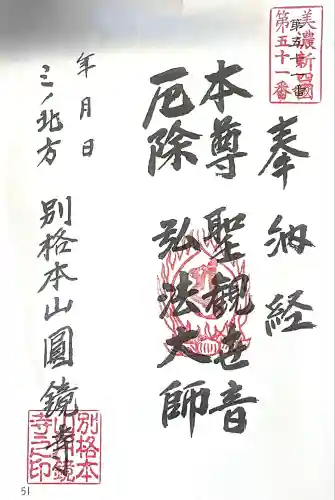 美濃新四國
第五十一番
奉納経
本尊 聖観世音
厄除 弘法大師
年月日
三ノ北方 別格本山圓鏡寺
別格本
山圓鏡
寺之印
51